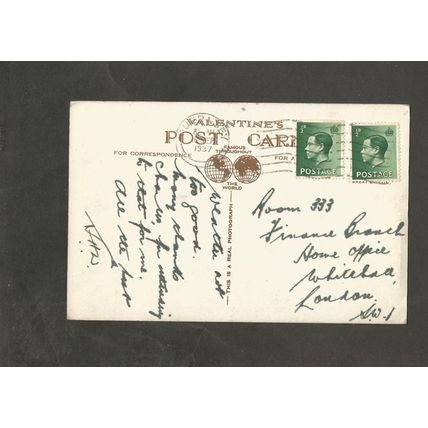 VALENTINE'S
POST CARD
FAMOUS
THROUGHOUT
THE
WORLD
FOR CORRESPONDENCE
FOR A
1937
½D
POSTAGE
½D
POSTAGE
THIS IS A REAL PHOTOGRAPH
Weather not
too good.
Many thanks
for
to that for me.
All the best
Room 333
Finance Branch
Home Office
Whitehall
London.
S.W.1